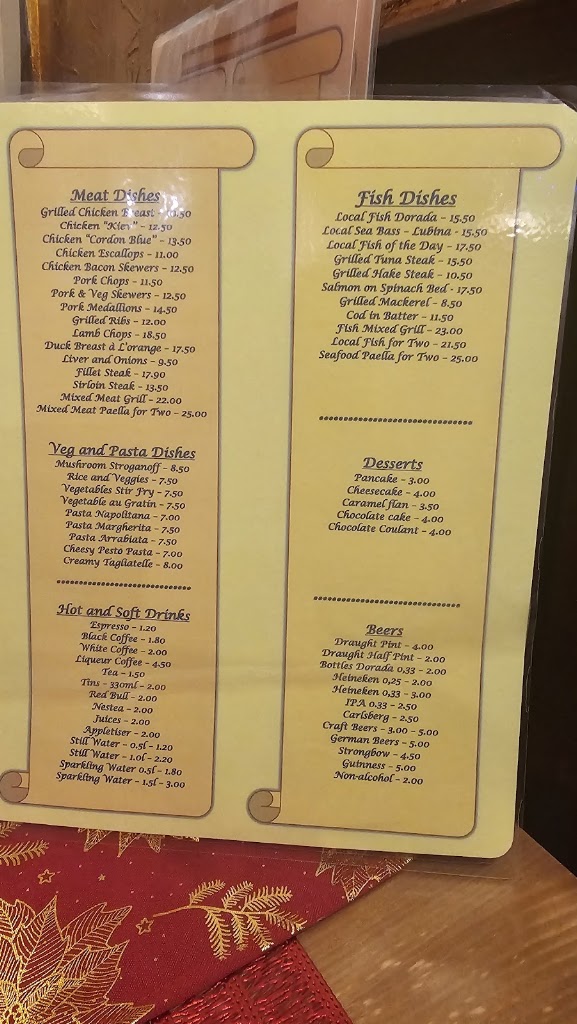 Meat Dishes
Grilled Chicken Breast - 10.50
Chicken "Kiev" - 12.50
Chicken "Cordon Blue" - 13.50
Chicken Escallops - 11.00
Chicken Bacon Skewers - 12.50
Pork Chops - 11.50
Pork & Veg Skewers - 12.50
Pork Medallions - 14.50
Grilled Ribs - 12.00
Lamb Chops - 18.50
Duck Breast à L'orange - 17.50
Liver and Onions - 9.50
Fillet Steak - 17.90
Sirloin Steak - 13.50
Mixed Meat Grill - 22.00
Mixed Meat Paella for Two - 25.00
Veg and Pasta Dishes
Mushroom Stroganoff - 8.50
Rice and Veggies - 7.50
Vegetables Stir Fry - 7.50
Vegetable au Gratin - 7.50
Pasta Napolitana - 7.00
Pasta Margherita - 7.50
Pasta Arrabiata - 7.50
Cheesy Pesto Pasta - 7.00
Creamy Tagliatelle - 8.00
Hot and Soft Drinks
Espresso - 1.20
Black Coffee - 1.80
White Coffee - 2.00
Liqueur Coffee - 4.50
Tea - 1.50
Tins - 330ml - 2.00
Red Bull - 2.00
Nestea - 2.00
Juices - 2.00
Appletiser - 2.00
Still Water - 0.5l - 1.20
Still Water - 1.0l - 2.20
Sparkling Water 0.5l - 1.80
Sparkling Water - 1.5l - 3.00
Fish Dishes
Local Fish Dorada - 15.50
Local Sea Bass - Lubina - 15.50
Local Fish of the Day - 17.50
Grilled Tuna Steak - 15.50
Grilled Hake Steak - 10.50
Salmon on Spinach Bed - 17.50
Grilled Mackerel - 8.50
Cod in Batter - 11.50
Fish Mixed Grill - 23.00
Local Fish for Two - 21.50
Seafood Paella for Two - 25.00
Desserts
Pancake - 3.00
Cheesecake - 4.00
Caramel flan - 3.50
Chocolate cake - 4.00
Chocolate Coulant - 4.00
Beers
Draught Pint - 4.00
Draught Half Pint - 2.00
Bottles Dorada 0,33 - 2.00
Heineken 0,25 - 2.00
Heineken 0,33 - 3.00
IPA 0.33 - 2.50
Carlsberg - 2.50
Craft Beers - 3.00 - 5.00
German Beers - 5.00
Strongbow - 4.50
Guinness - 5.00
Non-alcohol - 2.00